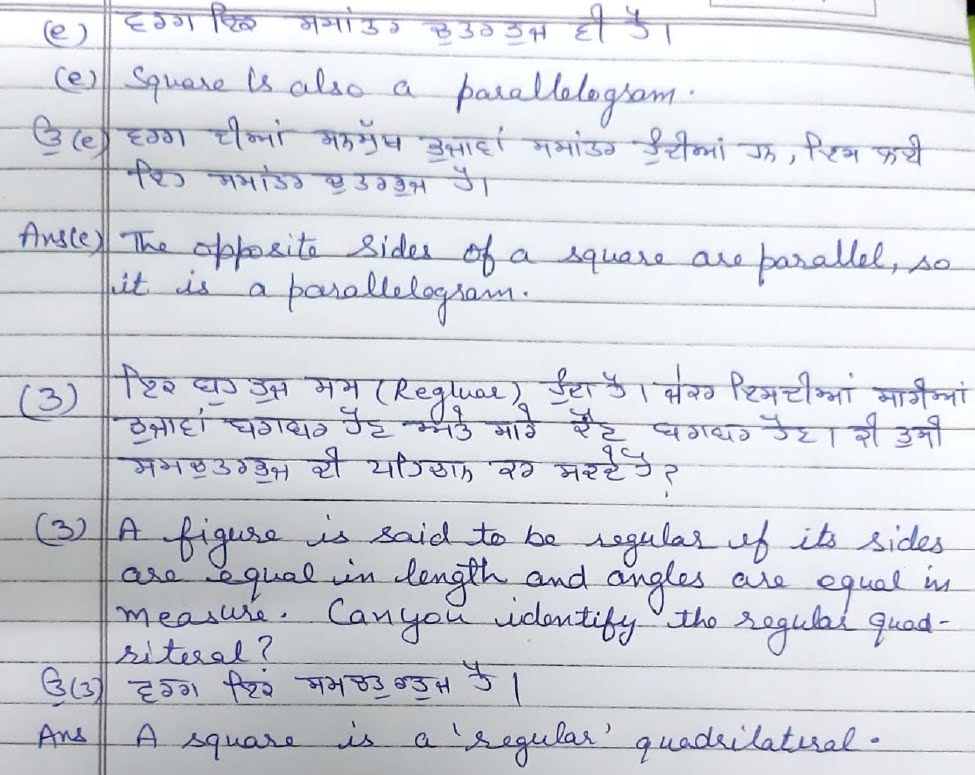 (e) ਵਰਗ ਇਕ ਸਮਾਂਤਰ ਚੁਤਰਭੁਜ ਵੀ ਹੈ।
(e) Square is also a parallelogram.
ਉ(e) ਵਰਗ ਦੀਆਂ ਸਨਮੁੱਖ ਭੁਜਾਵਾਂ ਸਮਾਂਤਰ ਹੁੰਦੀਆਂ ਹਨ, ਇਸ ਲਈ
ਇਹ ਸਮਾਂਤਰ ਚੁਤਰਭੁਜ ਹੈ।
Ans(e) The opposite sides of a square are parallel, so
it is a parallelogram.
(3) ਇਕ ਬਹੁਭੁਜ ਸਮ (Regluar) ਹੁੰਦਾ ਹੈ। ਜੇਕਰ ਇਸਦੀਆਂ ਸਾਰੀਆਂ
ਭੁਜਾਵਾਂ ਬਰਾਬਰ ਹੋਣ ਅਤੇ ਸਾਰੇ ਕੋਣ ਬਰਾਬਰ ਹੋਣ। ਕੀ ਤੁਸੀ
ਸਮਚੁਤਰਭੁਜ ਦੀ ਪਹਿਚਾਨ ਕਰ ਸਕਦੇ ਹੋ?
(3) A figure is said to be regular if its sides
are equal in length and angles are equal in
measure. Can you identify the regular quad-
riteral?
ਉ(3) ਵਰਗ ਇਕ ਸਮਚਤੁਰਭੁਜ ਹੈ।
Ans A square is a 'regular' quadrilateral.